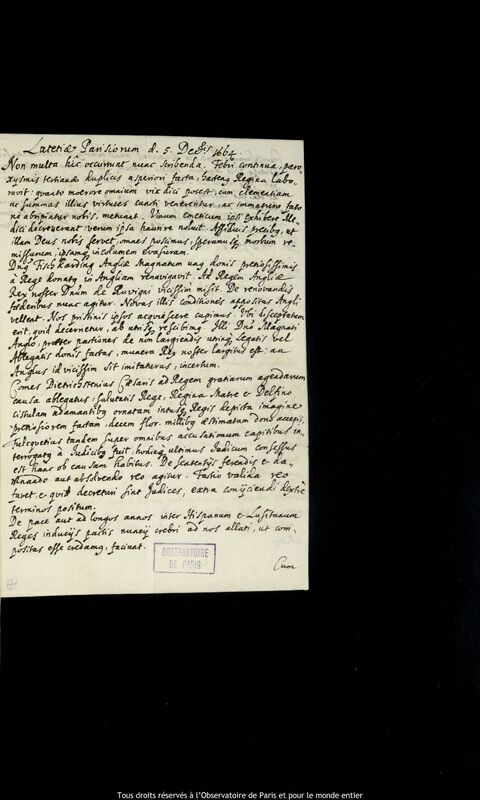 Lutetiæ Parisiorum d. 5. Decbris 1664.
Non multa hîc occurrunt nunc scribenda. Febri continua, paro-
xysmis tertianæ duplicis asperiori facta, hactenq Regina labo-
ravit: quanto moerore omnium vix dici potest, cum clementiam
ac summas illius virtutes cuncti venerentur, ac immaturo fato
ne abripiatur nobis, metuant. Vinum emeticum ipsi exhibere Me-
dici decreverant: verum ipsa haurire noluit. Assiduis precibq, ut
illam Deus nobis servet, omnes poscimus, speramusq morbum re-
missurum, ipsamq incolumem evasuram.
Dnq Fitsharding Angliæ Magnatum unq donis pretiosissimis
à Rege donatq in Angliam renavigavit. Ad Regem Angliæ
Rex noster Dnum de Ruvigni vicissim misit. De renovandis
foederibus nunc agitur. Novas illis conditiones appositas Angli
vellent. Nos pristinis ipsos acquiescere cupimus. Ubi disceptatum
erit, quid decernetur, ab utrisq rescibimq. Illi Dno Magnati
Anglo, præter pactiones de non largiendis utrinq Legatis vel
Ablegatis donis factas, munera Rex noster largitus est: an
Anglus id vicissim sit imitaturus, incertum.
Comes Dietrichsteinius Cæsaris ad Regem gratiarum agendarum
causa ablegatus, salutatis Rege, Regina Matre & Delfino
cistulam adamantibq ornatam intusq Regis depicta imagine
pretiosiorem factam, decem flor. millibq æstimatam dono accepit.
Fulquetius tandem super omnibus accusationum capitibus in-
terrogatq à Judicibq fuit, hodieq ultimus Judicum consessus
est hanc ob causam habitus. De sententiis ferendis & da-
mnando aut absolvendo reo agitur. Factio valida reo
favet & quid decreturi sint Judices, extra conijciendi
terminos positum.
De pace aut ad longos annos inter Hispanum & Lusitanum
Reges induciis pactis nuncij crebri ad nos allati, ut com-
positas esse credamq, faciunt.
Cum
OBSERVATOIRE
DE PARIS
Tous droits réservés à l'Observatoire de Paris et pour le monde entier